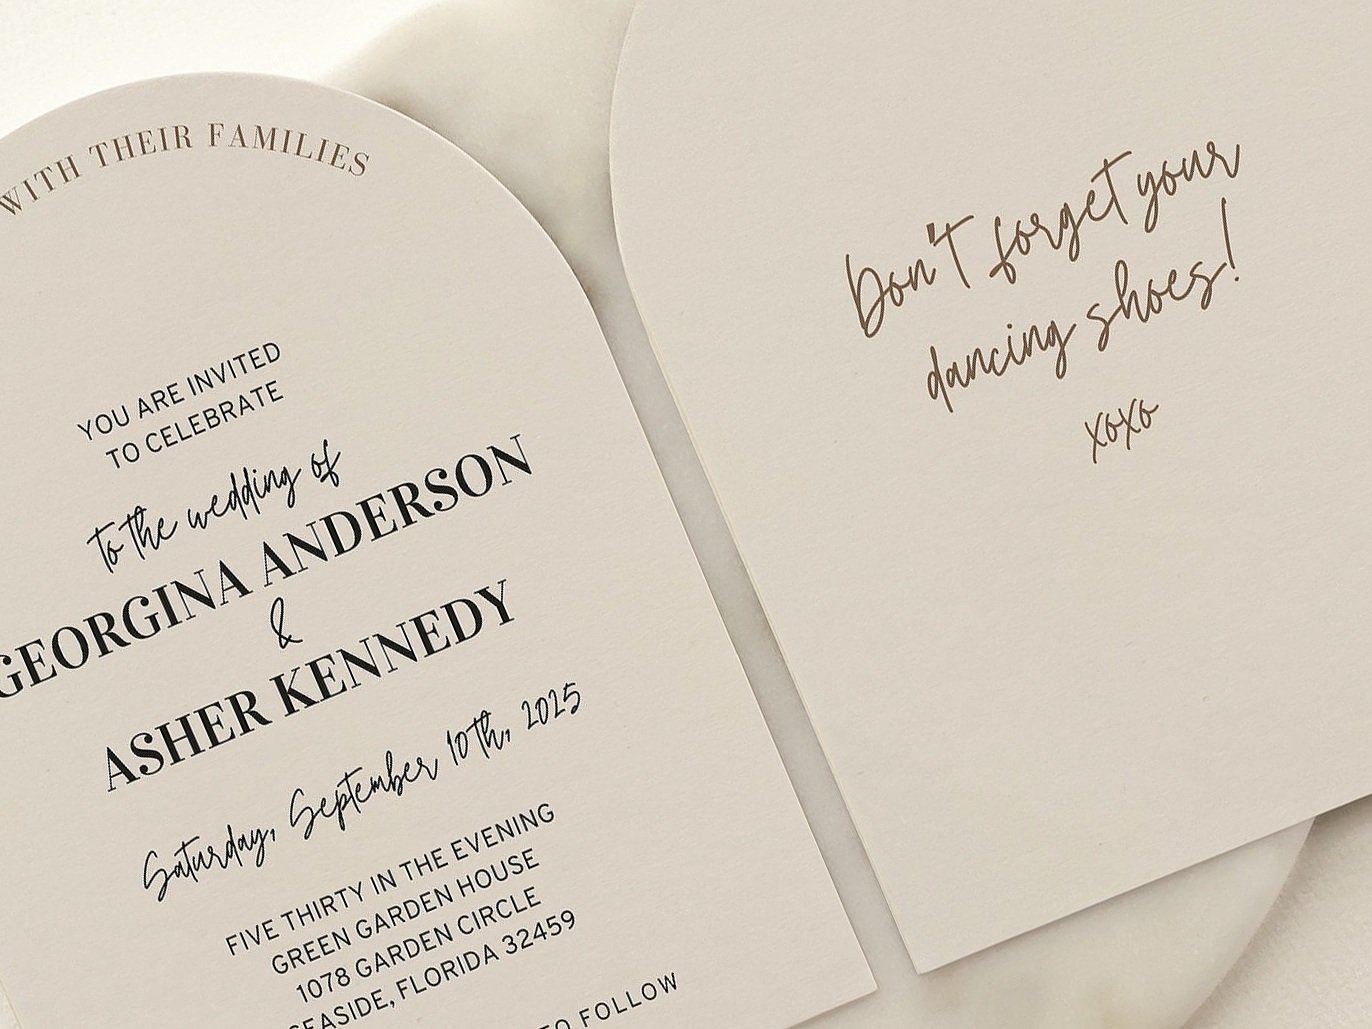 WITH THEIR FAMILIES
YOU ARE INVITED
TO CELEBRATE
to the wedding of
GEORGINA ANDERSON
&
ASHER KENNEDY
Saturday, September 10th, 2025
FIVE THIRTY IN THE EVENING
GREEN GARDEN HOUSE
1078 GARDEN CIRCLE
SEASIDE, FLORIDA 32459
TO FOLLOW
Don't forget your
dancing shoes!
xoxo